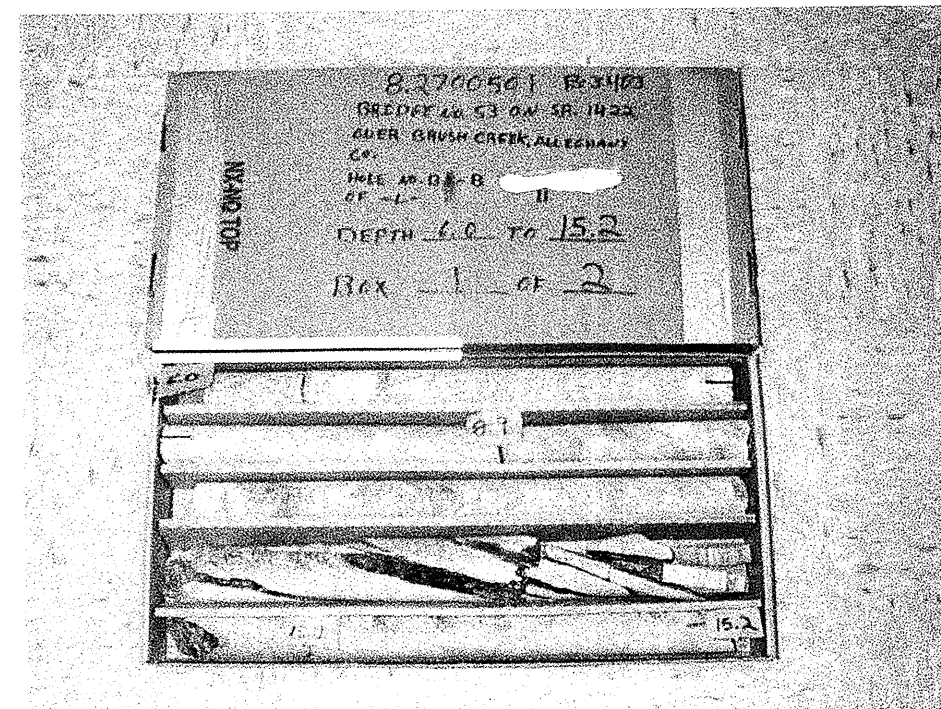 8.2700501 B-3403
BRIDGE NO. 53 ON SR. 1422
OVER BRUSH CREEK, ALLEGHANY
CO.
HOLE NO. -B
OF -L-
DEPTH 6.0 TO 15.2
BOX 1 OF 2
NX-NQ TOP
6.0
8.9
15.2